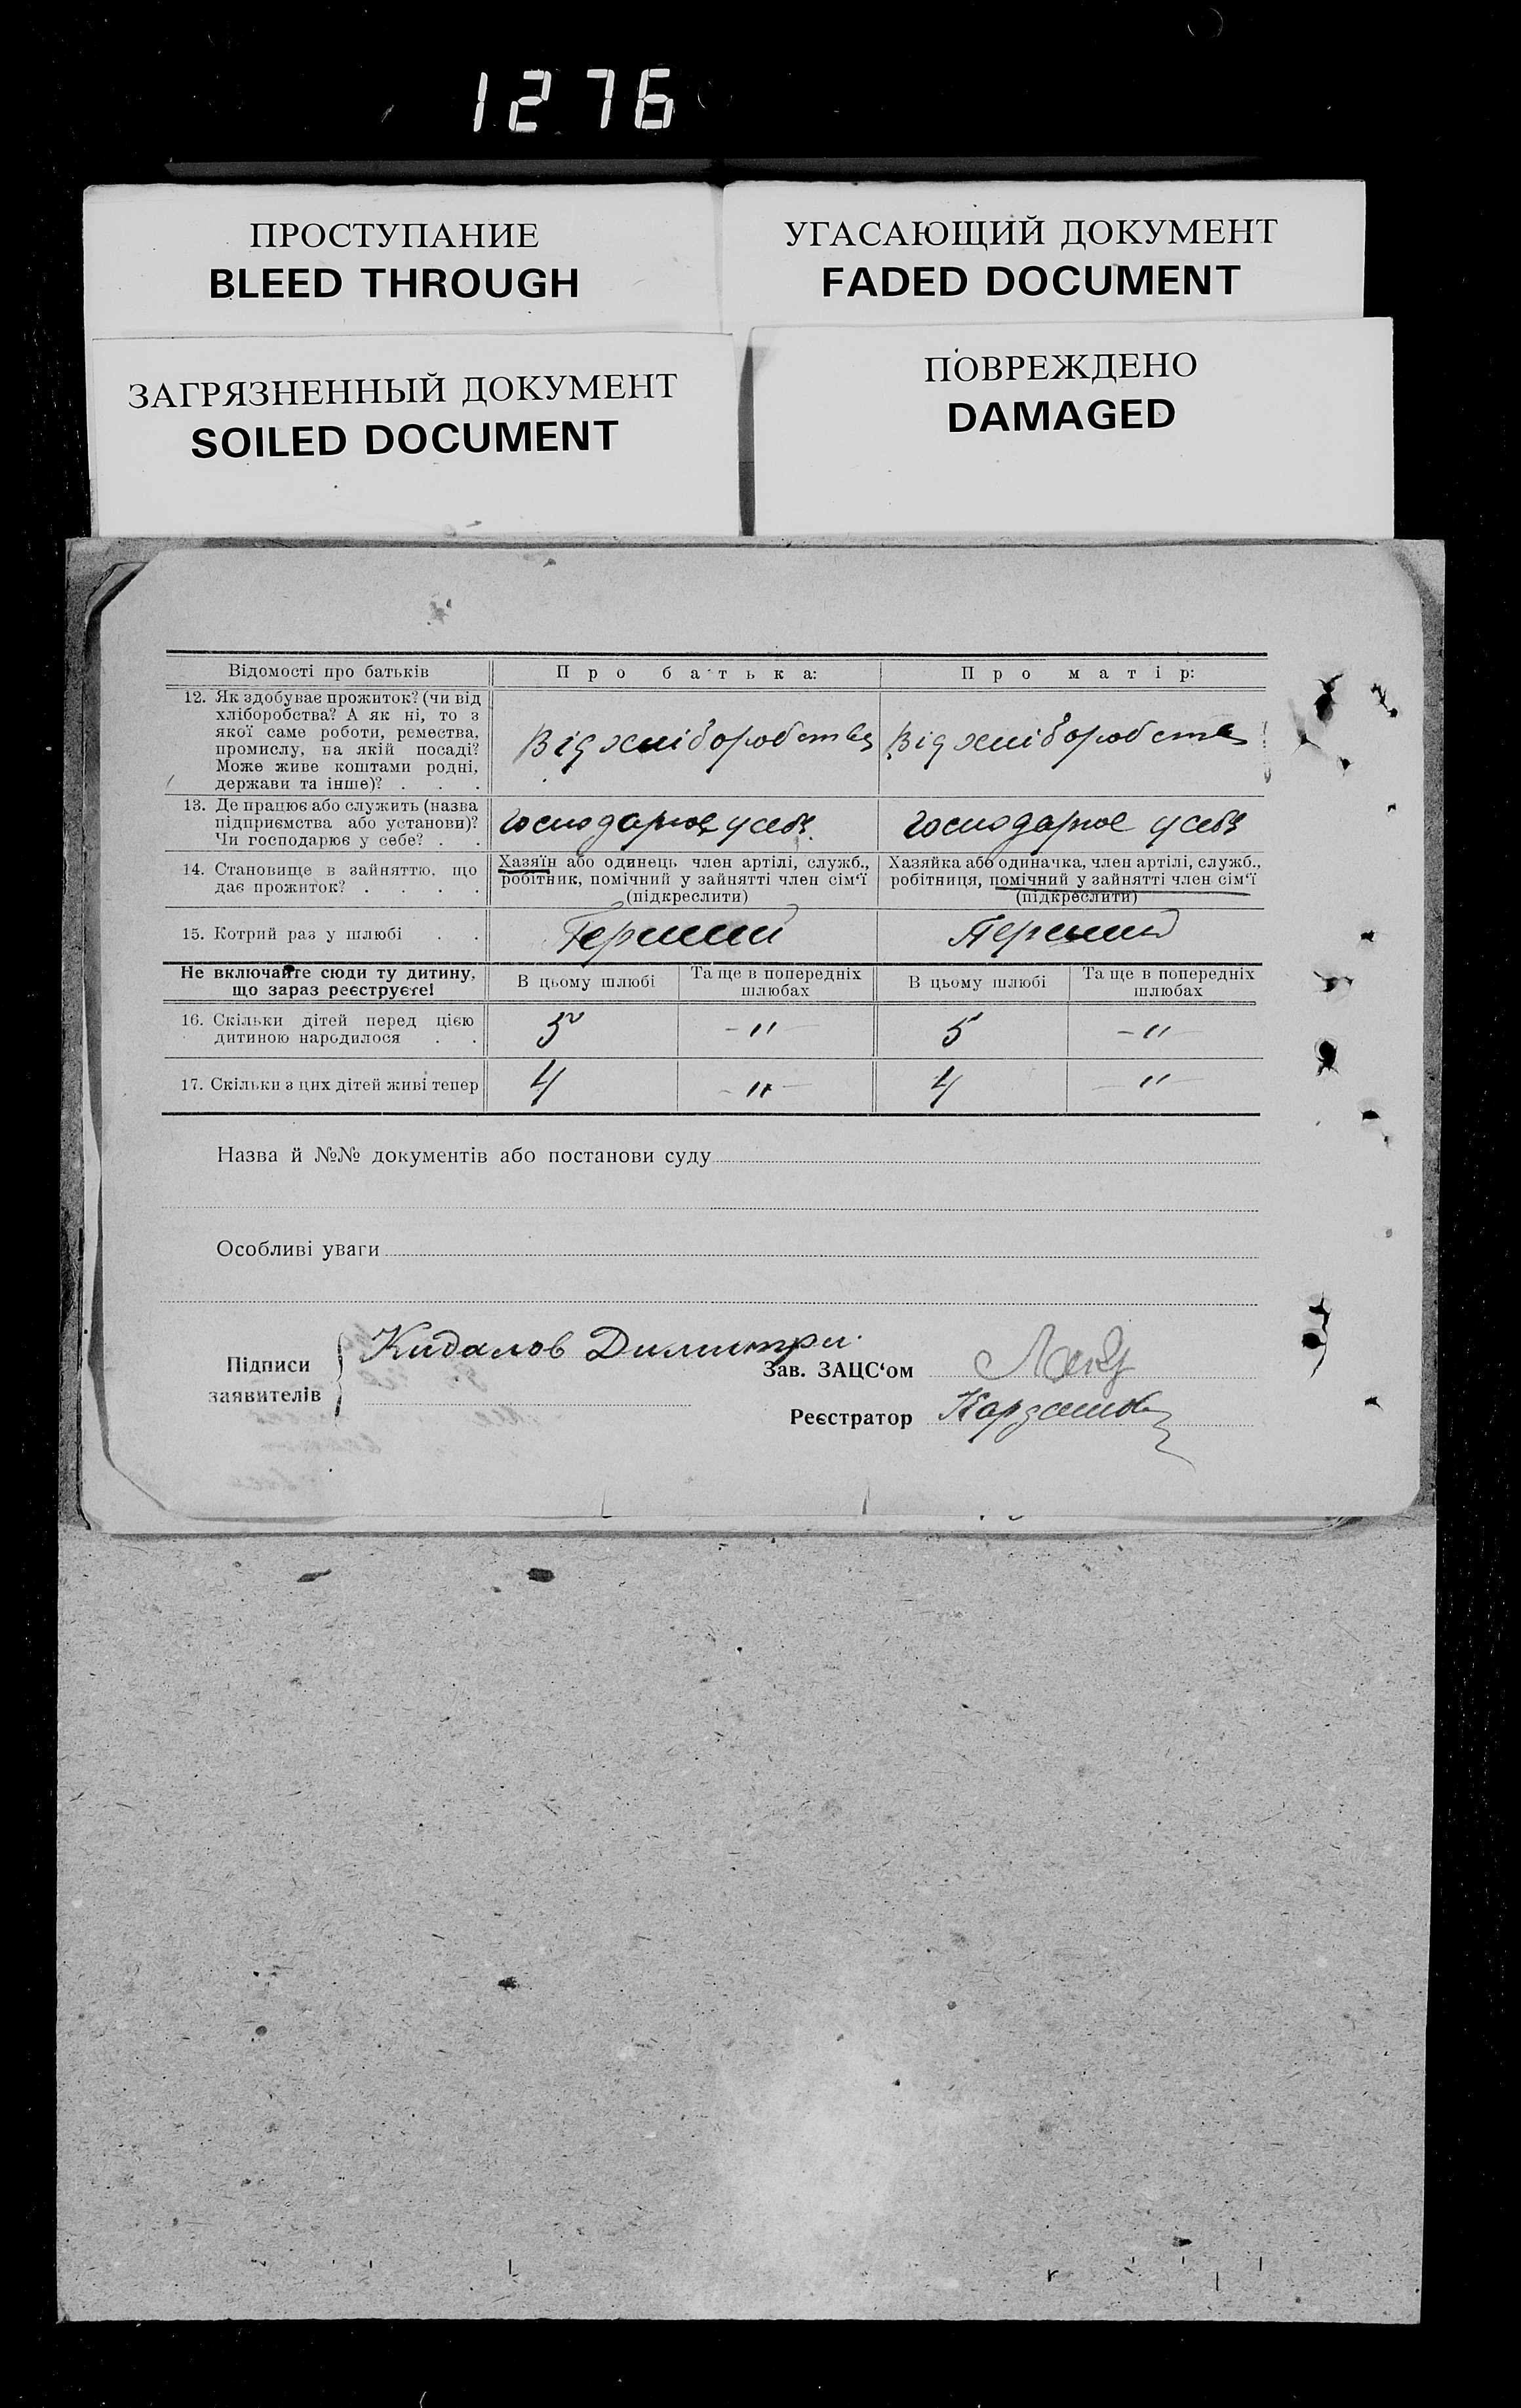 1276
ПРОСТУПАНИЕ
BLEED THROUGH
УГАСАЮЩИЙ ДОКУМЕНТ
FADED DOCUMENT
ЗАГРЯЗНЕННЫЙ ДОКУМЕНТ
SOILED DOCUMENT
ПОВРЕЖДЕНО
DAMAGED
Відомості про батьків
Про батька:
Про матір:
12. Як здобуває прожиток? (чи від
хліборобства? А як ні, то з
якої саме роботи, ремества,
промислу, на якій посаді?
Може живе коштами родні,
держави та інше)? . . .
Від хліборобства
Від хліборобства
13. Де працює або служить (назва
підприємства або установи)?
Чи господарює у себе? . .
господарює у себе
господарює у себе
14. Становище в зайняттю, що
дає прожиток? . . . .
Хазяїн або одинець член артілі, служб.,
робітник, помічний у зайнятті член сім‘ї
(підкреслити)
Хазяйка або одиначка, член артілі, служб.,
робітниця, помічний у зайнятті член сім‘ї
(підкреслити)
15. Котрий раз у шлюбі . .
Перший
Перший
Не включайте сюди ту дитину,
що зараз реєструєте!
В цьому шлюбі
Та ще в попередніх
шлюбах
В цьому шлюбі
Та ще в попередніх
шлюбах
16. Скільки дітей перед цією
дитиною народилося . .
5
–"–
5
–"–
17. Скільки з цих дітей живі тепер
4
–"–
4
–"–
Назва й №№ документів або постанови суду
Особливі уваги
Підписи
заявителів
Кидалов Димитри
Зав. ЗАЦС‘ом
Реєстратор